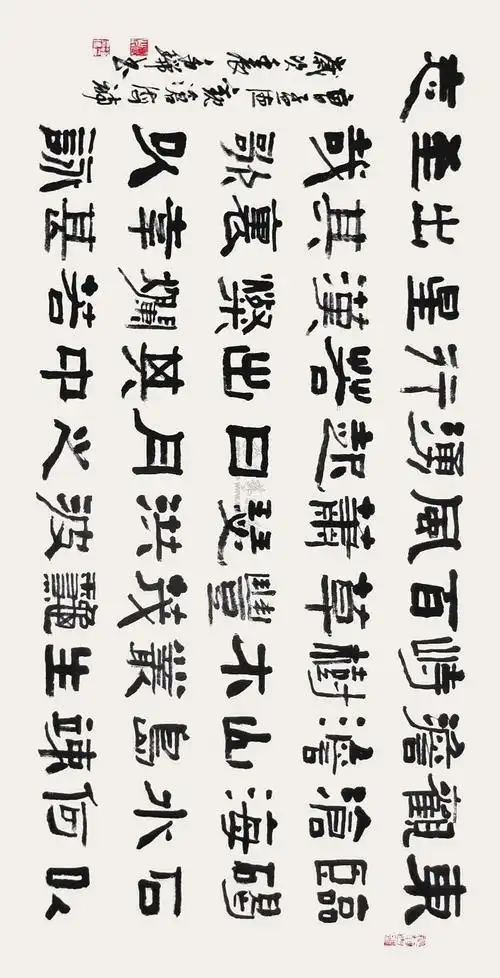 東臨碣石以
觀滄海水何
澹澹山島竦
峙樹木叢生
百草豐茂龝
風蕭瑟洪波
湧起日月之
行若出其中
星漢燦爛若
出其裏幸甚
至哉歌以詠
志